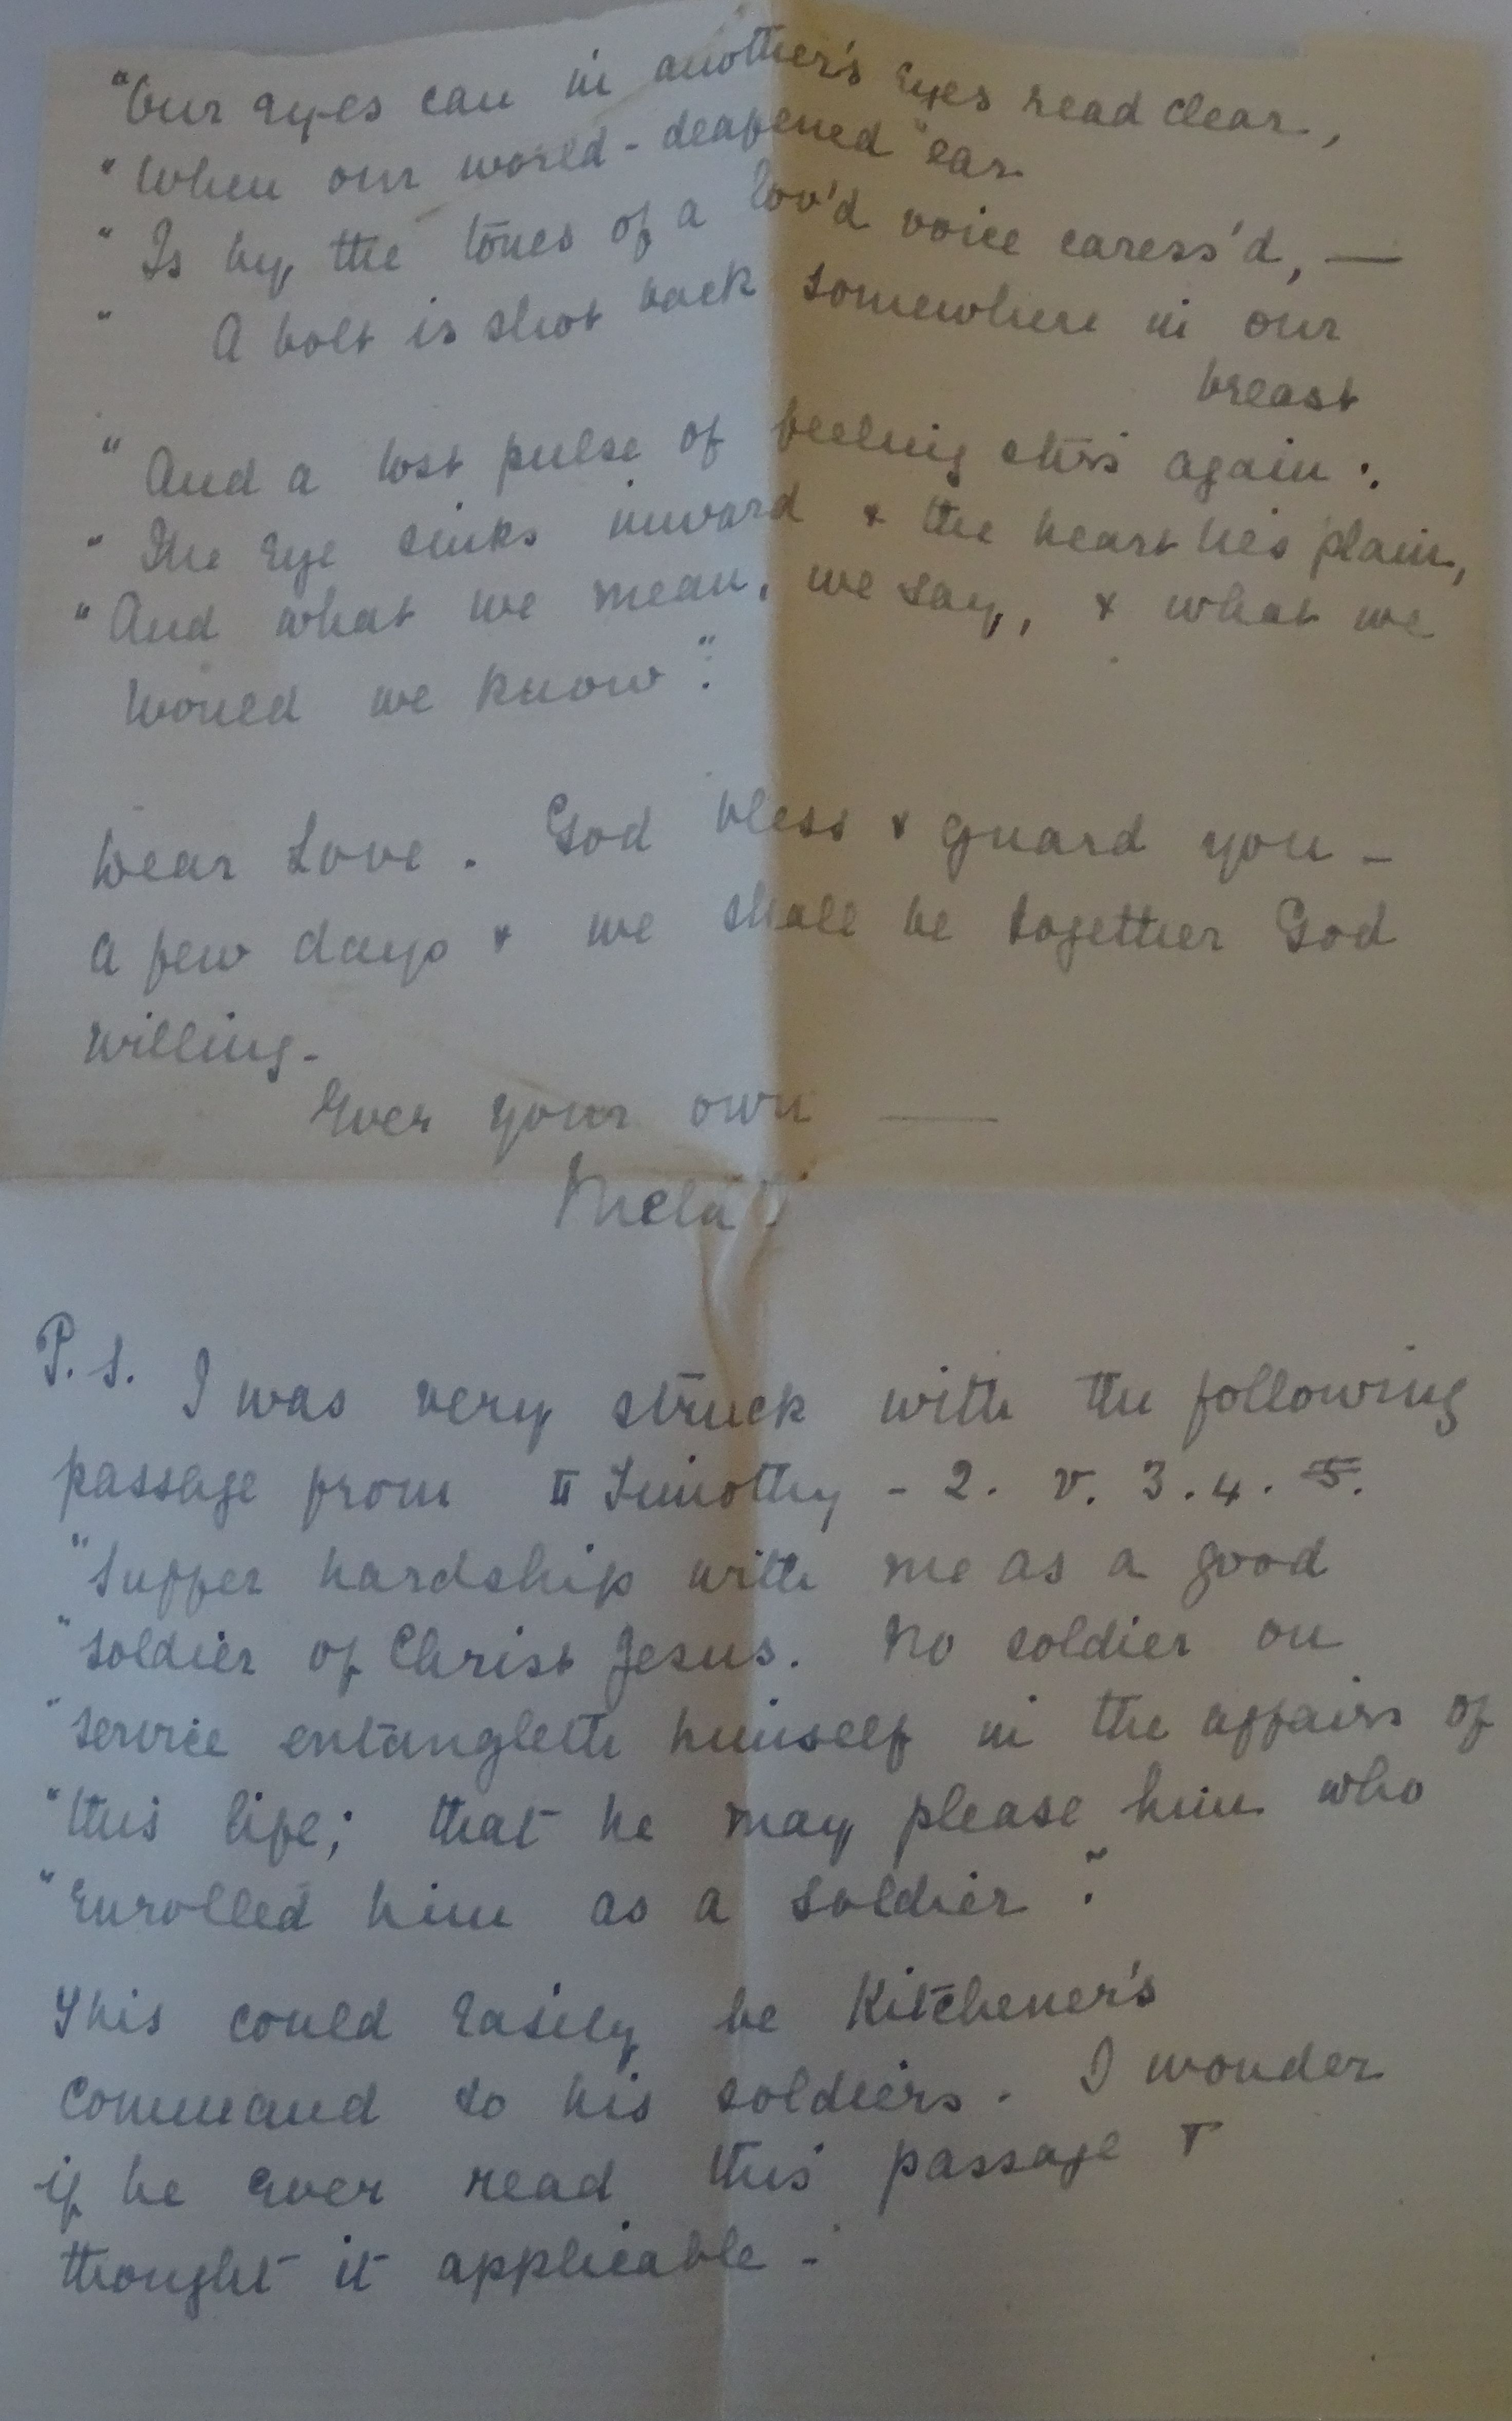 "Our eyes can in another's eyes read clear,
"When our world-deafened "ear
"Is by the tones of a lov'd voice caress'd, —
" A bolt is shot back somewhere in our
breast
"And a lost pulse of feeling stirs again:
"The eye sinks inward & the heart lies plain,
"And what we mean, we say, & what we
would we know".
Dear Love. God bless & guard you -
A few days & we shall be together God
willing -
Ever your own —
P.S. I was very struck with the following
passage from II Timothy - 2. v. 3. 4. 5.
"Suffer hardship with me as a good
"soldier of Christ Jesus. No soldier on
"service entangleth himself in the affairs of
"this life; that he may please him who
"enrolled him as a soldier".
This could easily be Kitchener's
command to his soldiers. I wonder
if he ever read this passage &
thought it applicable -